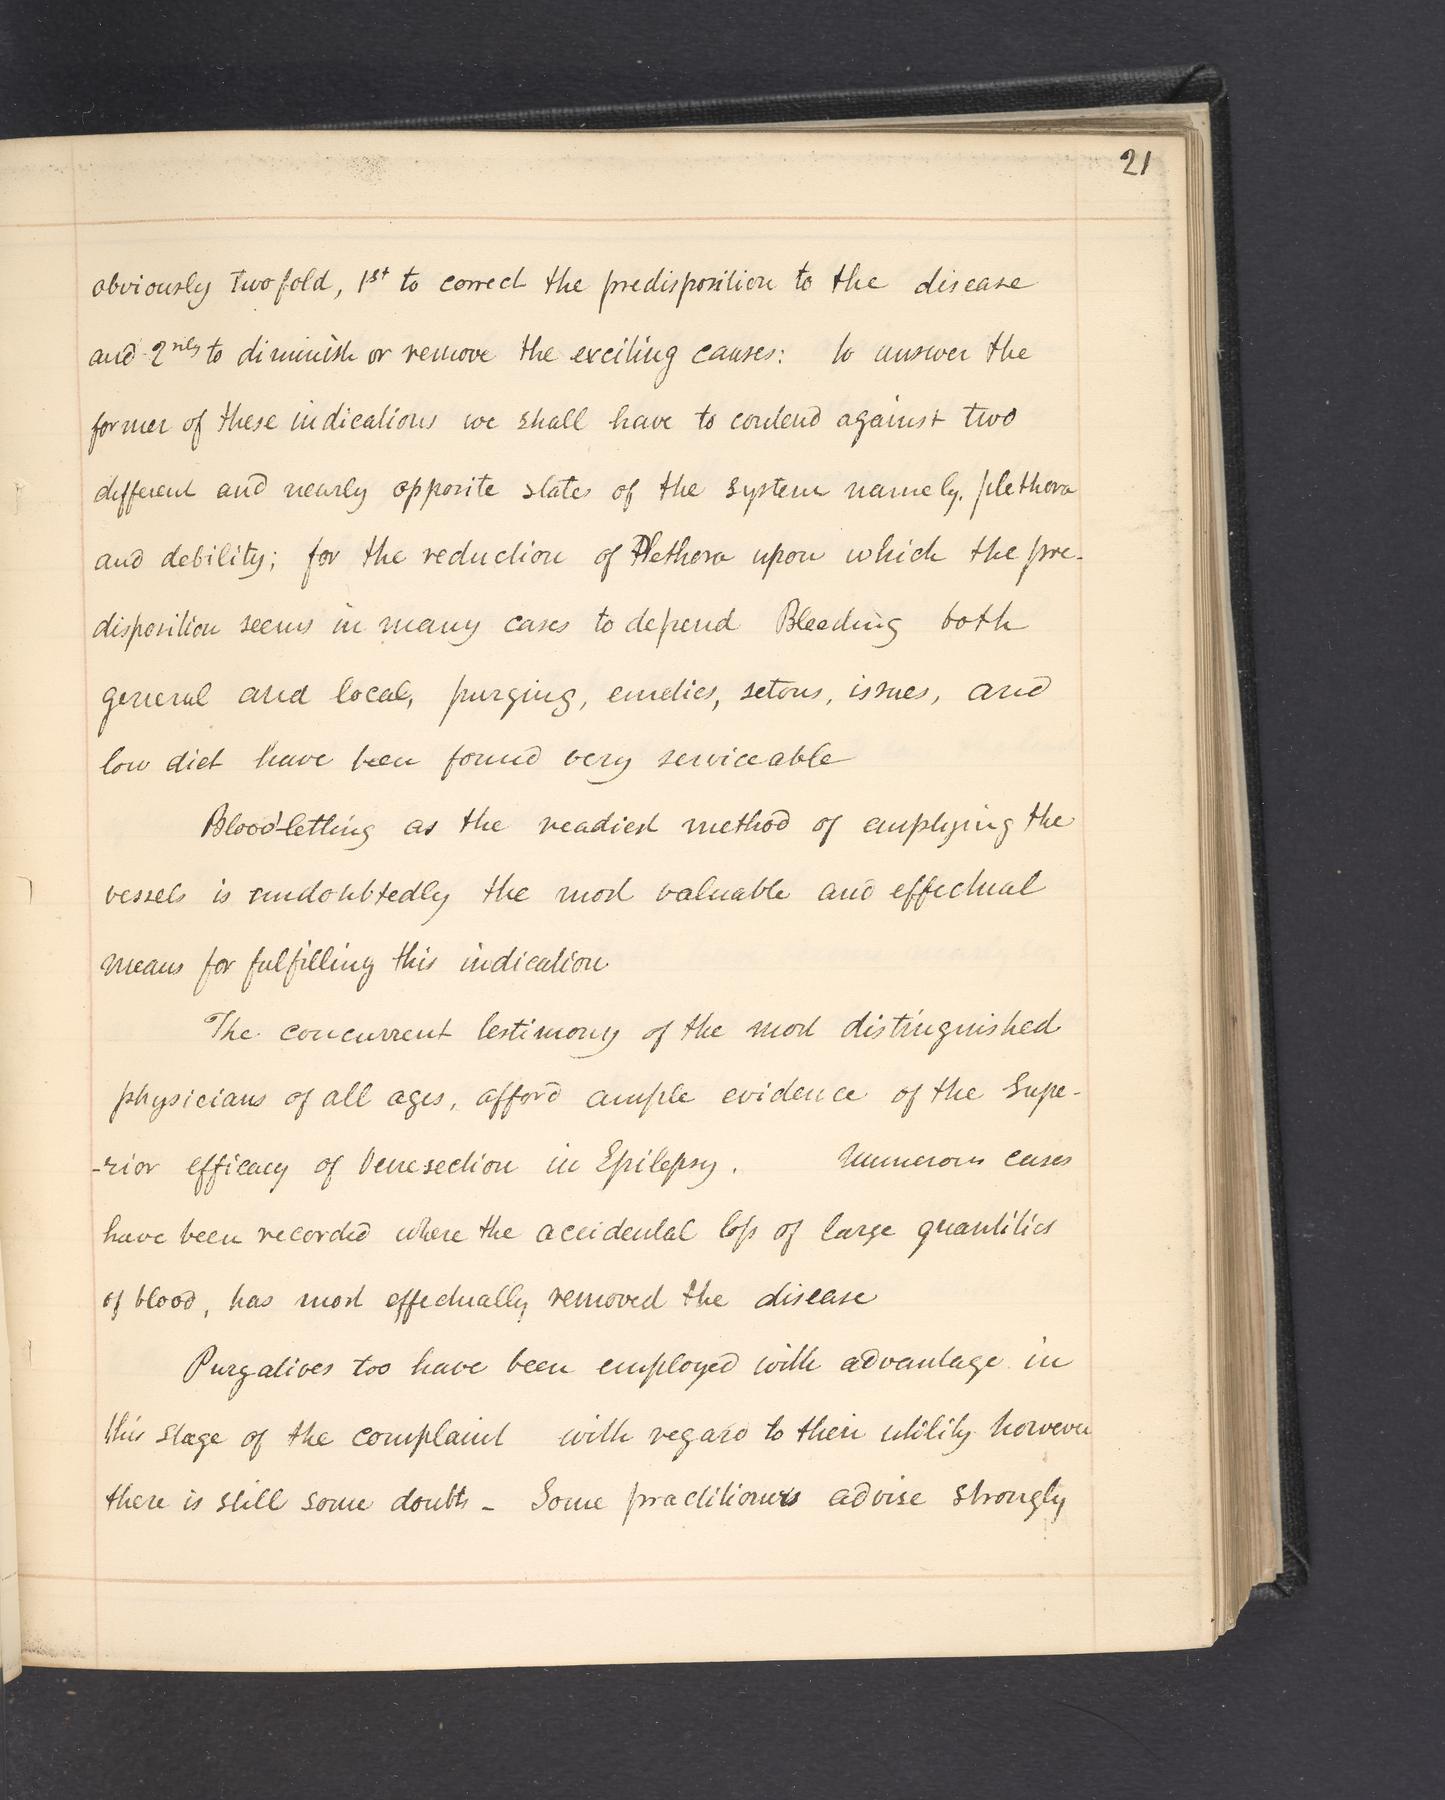 21
obviously twofold, 1st to correct the predisposition to the disease
and 2ndly to diminish or remove the exciting causes: to answer the
former of these indications we shall have to contend against two
different and nearly opposite states of the system namely. plethora
and debility; for the reduction of Plethora upon which the pre-
disposition seems in many cases to depend Bleeding both
general and local, purging, emetics, setons, issues, and
low diet have been found very serviceable
Blood-letting as the readiest method of emptying the
vessels is undoubtedly the most valuable and effectual
means for fulfilling this indication
The concurrent testimony of the most distinguished
physicians of all ages, afford ample evidence of the Supe-
-rior efficacy of Venesection in Epilepsy. Numerous cases
have been recorded where the accidental loss of large quantities
of blood, has most effectually removed the disease
Purgatives too have been employed with advantage in
this stage of the complaint with regard to their utility however
there is still some doubts - Some practitioners advise strongly